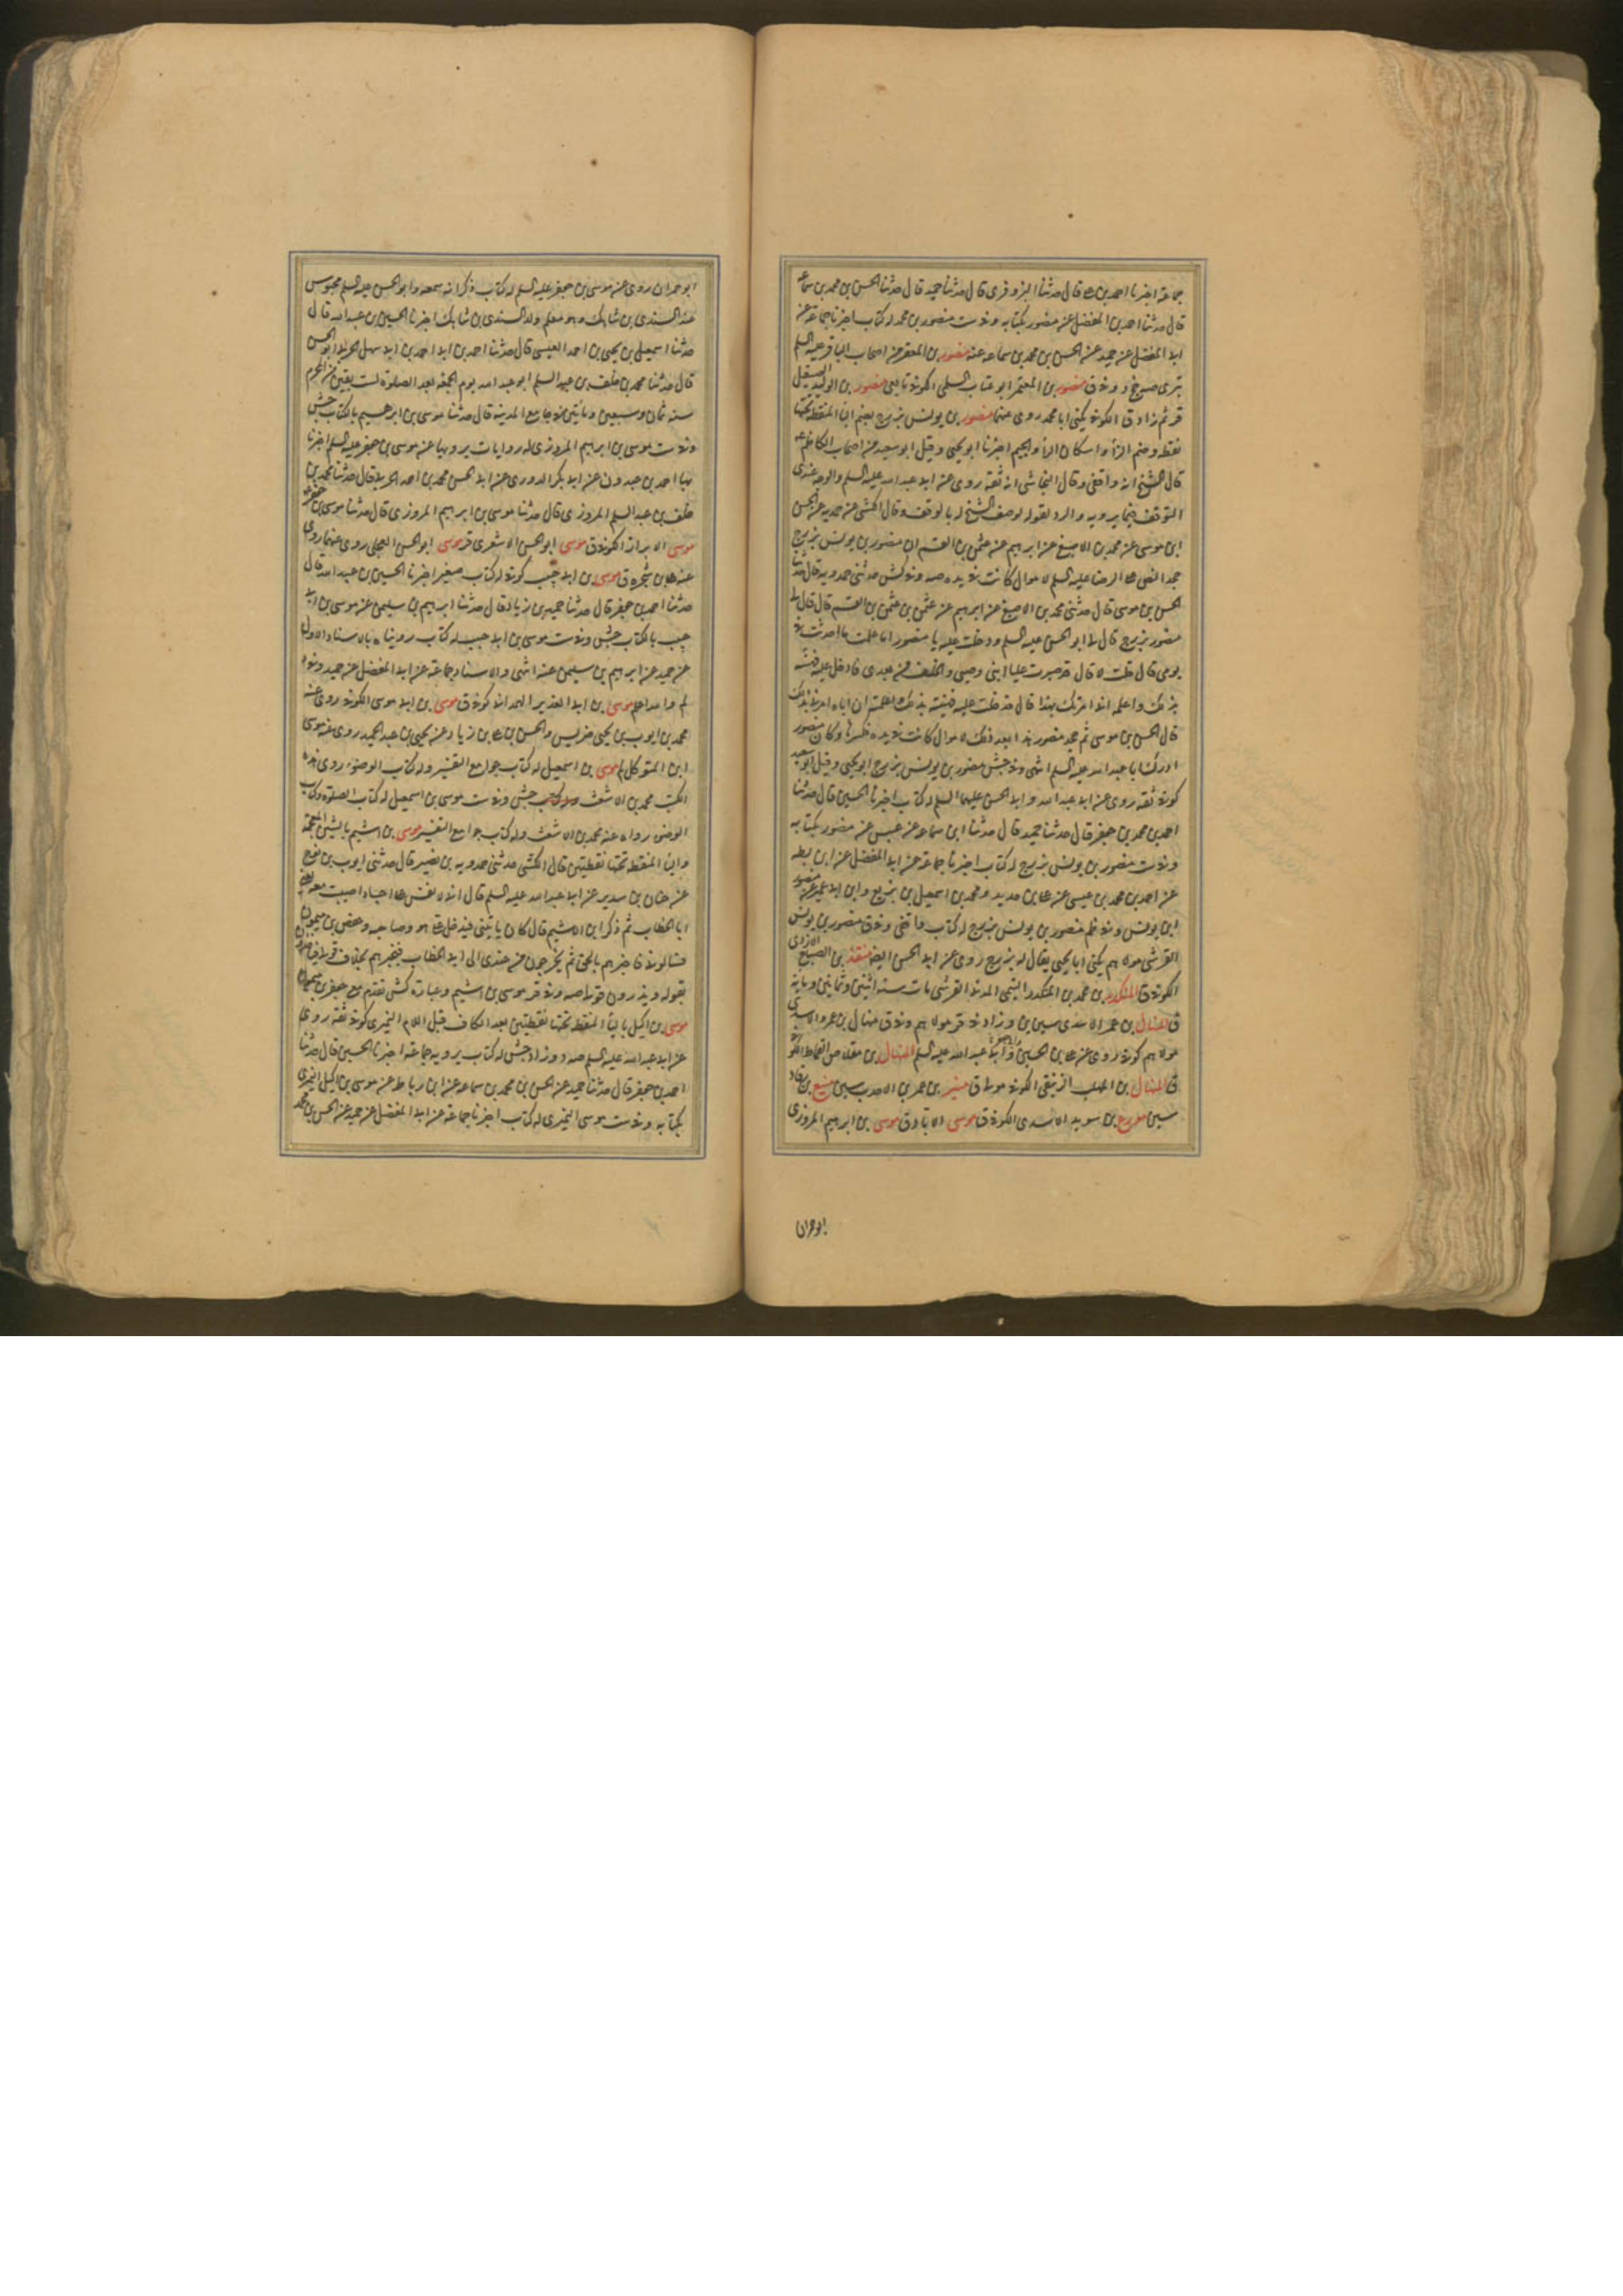 جماعة اخبرنا احمد بن قال حدثنا البزوفرى قال حدثنا حميد قال حدثنا الحسن بن محمد بن سماعة
قال حدثنا احمد بن المفضل عن منصور بكتابه وفى ست منصور بن محمد له كتاب اخبرنا جماعة عن
ابى المفضل عن حميد عن الحسن بن محمد بن سماعه عنه منصور بن المعتمر من اصحاب الباقر عليه السلم
بترى صه وفى ق منصور بن المعتمر ابو عتاب السلمى الكوفى تابعى منصور بن الوليد الصيقل
قر ثم زاد ق الكوفى يكنى ابا محمد روى عنهما منصور بن يونس بزرج بضم الباء المنقطه تحتها
نقطه وضم الزاء واسكان الراء والجيم اخيرا ابو يحيى وقيل ابو سعيد من اصحاب الكاظم ع
قال الشيخ انه واقفى وقال النجاشى انه ثقة روى عن ابى عبد الله عليه السلم والوجه عندى
التوقف فيما يرويه والرد لقوله لوصف الشيخ له بالوقف وقال الكشى عن حمدويه عن الحسن
ابن موسى عن محمد بن الاصبغ عن ابراهيم عن عثمن بن القسم ان منصور بن يونس بزرج
جحد النص على الرضا عليه السلم لاموال كانت فى يده صه وفى كش حدثنى حمدويه قال حدثنا
الحسن بن موسى قال حدثنى محمد بن الاصبغ عن ابراهيم عن عثمن بن القسم قال قال لى
منصور بزرج قال لى ابو الحسن عليه السلم ودخلت عليه يا منصور اما علمت ما احدثت فى
يومى قال قلت لا قال قد صيرت عليا ابنى وصيى والخلف من بعدى فادخل عليه فهنئه
بذلك واعلمه انى امرتك بهذا قال فدخلت عليه فهنيته بذلك واعلمته ان اباه امرنى بذلك
قال الحسن بن موسى ثم جحد منصور هذا بعد ذلك لاموال كانت فى يده فكسرها وكان منصور
ادرك ابا عبد الله عليه السلم انتهى وفى جش منصور بن يونس بزرج ابو يحيى وقيل ابو سعيد
كوفى ثقة روى عن ابى عبد الله وابى الحسن عليهما السلم له كتاب اخبرنا الحسين قال حدثنا
احمد بن محمد بن جعفر قال حدثنا حميد قال حدثنا ابن سماعة عن عبيس عن منصور بكتابه
وفى ست منصور بن يونس بزرج له كتاب اخبرنا جماعة عن ابى المفضل عن ابن بطه
عن احمد بن محمد بن عيسى عن على بن حديد ومحمد بن اسمعيل بن بزيع وابن ابى عمير عن منصور
ابن يونس وفى ظم منصور بن يونس بزرج له كتاب واقفى وفى ق منصور بن يونس
القرشى مولاهم يكنى ابا يحيى يقال له بزرج روى عن ابى الحسن ايضا منقذ بن الصباح الازدى
الكوفى ق المنكدر بن محمد بن المنكدر التيمى المدنى القرشى مات سنه اثنين وثمانين ومايه
ق المنهال بن عمر الاسدى سين ين وزاد فى قر مولاهم وفى ق منهال بن عمرو الاسدى
مولاهم كوفى روى عن على بن الحسين وابى جعفر وابى عبد الله عليه السلم المنهال بن مقلاص القماط الكوفى
ق المنهال بن المهلب الكوفى مولى ق منير بن عمر بن الاحدب سين منيع بن رقاد
سين بن سويد الاسدى الكوفى ق موسى الابار ق موسى بن ابراهيم المروزى
ابو حمران
ابو حمران روى عن موسى بن جعفر عليه السلم له كتاب ذكر انه سمعه وابو الحسن عليه السلم محبوس
عند السندى بن شاهك وهو معلم ولد السندى بن شاهك اخبرنا الحسين بن عبد الله قال
حدثنا اسمعيل بن يحيى بن احمد العبسى قال حدثنا احمد بن ابى سهل الحربى ابو الحسن
قال حدثنا محمد بن خلف بن عبد السلم ابو عبد الله يوم الجمعه بعد الصلوة لست بقين من المحرم
سنه ثمان وسبعين ومأتين فى جامع المدينه قال حدثنا موسى بن ابرهيم بالكتاب جش
وفى ست موسى بن ابراهيم المروزى له روايات يرويها عن موسى بن جعفر عليه السلم اخبرنا
بها احمد بن عبدون عن ابى بكر الدورى عن ابى الحسن محمد بن احمد الحربى قال حدثنا محمد بن
خلف بن عبد السلم المروزى قال حدثنا موسى بن ابراهيم المروزى قال حدثنا موسى بن جعفر ع
موسى الابزاز الكوفى ق موسى ابو الحسن الاشعرى قر موسى ابو الحسن العجلى روى عنهما روى
عنه على بن شجره ق موسى بن ابى حبيب كوفى له كتاب صغير اخبرنا الحسين بن عبيد الله قال
حدثنا احمد بن جعفر قال حدثنا حميد بن زياد قال حدثنا ابراهيم بن سليمن عن موسى بن ابى
حبيب بالكتاب جش وفى ست موسى بن ابى حبيب له كتاب رويناه بالاسناد الاول
عن حميد عن ابراهيم بن سليمن عنه انتهى والاسناد جماعة عن ابى المفضل عن حميد وفى
لم واحد اعلم موسى بن ابى الغدير الهمدانى كوفى ق موسى بن ابى موسى الكوفى روى عنه
محمد بن ايوب بن يحيى ضريس والحسن بن على بن زياد عن يحيى بن عبد الحميد روى عنه موسى
ابن المتوكل لم موسى بن اسمعيل له كتاب جوامع التفسير وله كتاب الوضوء روى هذه
الكتب محمد بن الاشعث جش وفى ست موسى بن اسمعيل له كتاب الصلوة وكتاب
الوضوء رواه عنه محمد بن الاشعث وله كتاب جوامع التفسير موسى بن اشيم بالشين المعجمة
والياء المنقطه تحتها نقطتين قال الكشى حدثنى حمدويه بن نصير قال حدثنى ايوب بن نوح
عن حنان بن سدير عن ابى عبد الله عليه السلم قال انى لانفس على اجساد اصيبت معه يعنى
ابا الخطاب ثم ذكر ابن الاشيم قال كان ياتينى فيدخل على هو وصاحبه وحفص بن ميمون
فيسالونى فاخبرهم بالحق ثم يخرجون من عندى الى ابى الخطاب فيخبرهم بخلاف قولى فياخذون
بقوله ويذرون قولى صه وفى قر موسى بن اشيم وعبارة كش تقدم مع جعفر بن ميمون
موسى بن اكيل بالياء المنقطه تحتها نقطتين بعد الكاف قبل اللام النميرى كوفى ثقه روى
عن ابى عبد الله عليه السلم صه وزاد جش له كتاب يرويه جماعة اخبرنا الحسين قال حدثنا
احمد بن جعفر قال حدثنا حميد عن الحسن بن محمد بن سماعه عن ابن رباط عن موسى بن اكيل النميرى
بكتابه وفى ست موسى النميرى له كتاب اخبرنا جماعة عن ابى المفضل عن حميد عن الحسن بن محمد